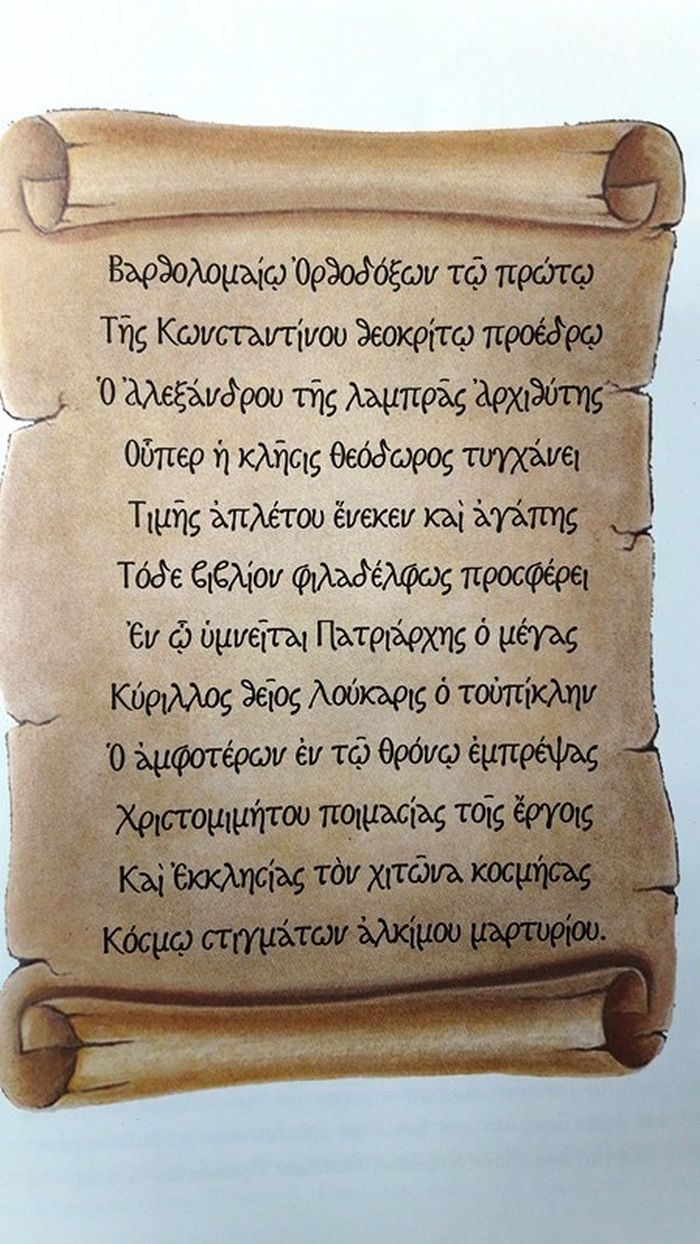 Βαρθολομαίῳ Ὀρθοδόξων τῷ πρώτῳ
Τῆς Κωνσταντίνου θεοκρίτῳ προέδρῳ
Ὁ Ἀλεξάνδρου τῆς λαμπρᾶς Ἀρχιθύτης
Οὗπερ ἡ κλῆσις Θεόδωρος τυγχάνει
Τιμῆς ἀπλέτου ἕνεκεν καὶ ἀγάπης
Τόδε βιβλίον φιλαδέλφως προσφέρει
Ἐν ᾧ ὑμνεῖται Πατριάρχης ὁ μέγας
Κύριλλος θεῖος Λούκαρις ὁ τοὐπίκλην
Ὁ ἀμφοτέρων ἐν τῷ θρόνῳ ἐμπρέψας
Χριστομιμήτου ποιμασίας τοῖς ἔργοις
Καὶ Ἐκκλησίας τὸν χιτῶνα κοσμήσας
Κόσμῳ στιγμάτων ἀλκίμου μαρτυρίου.